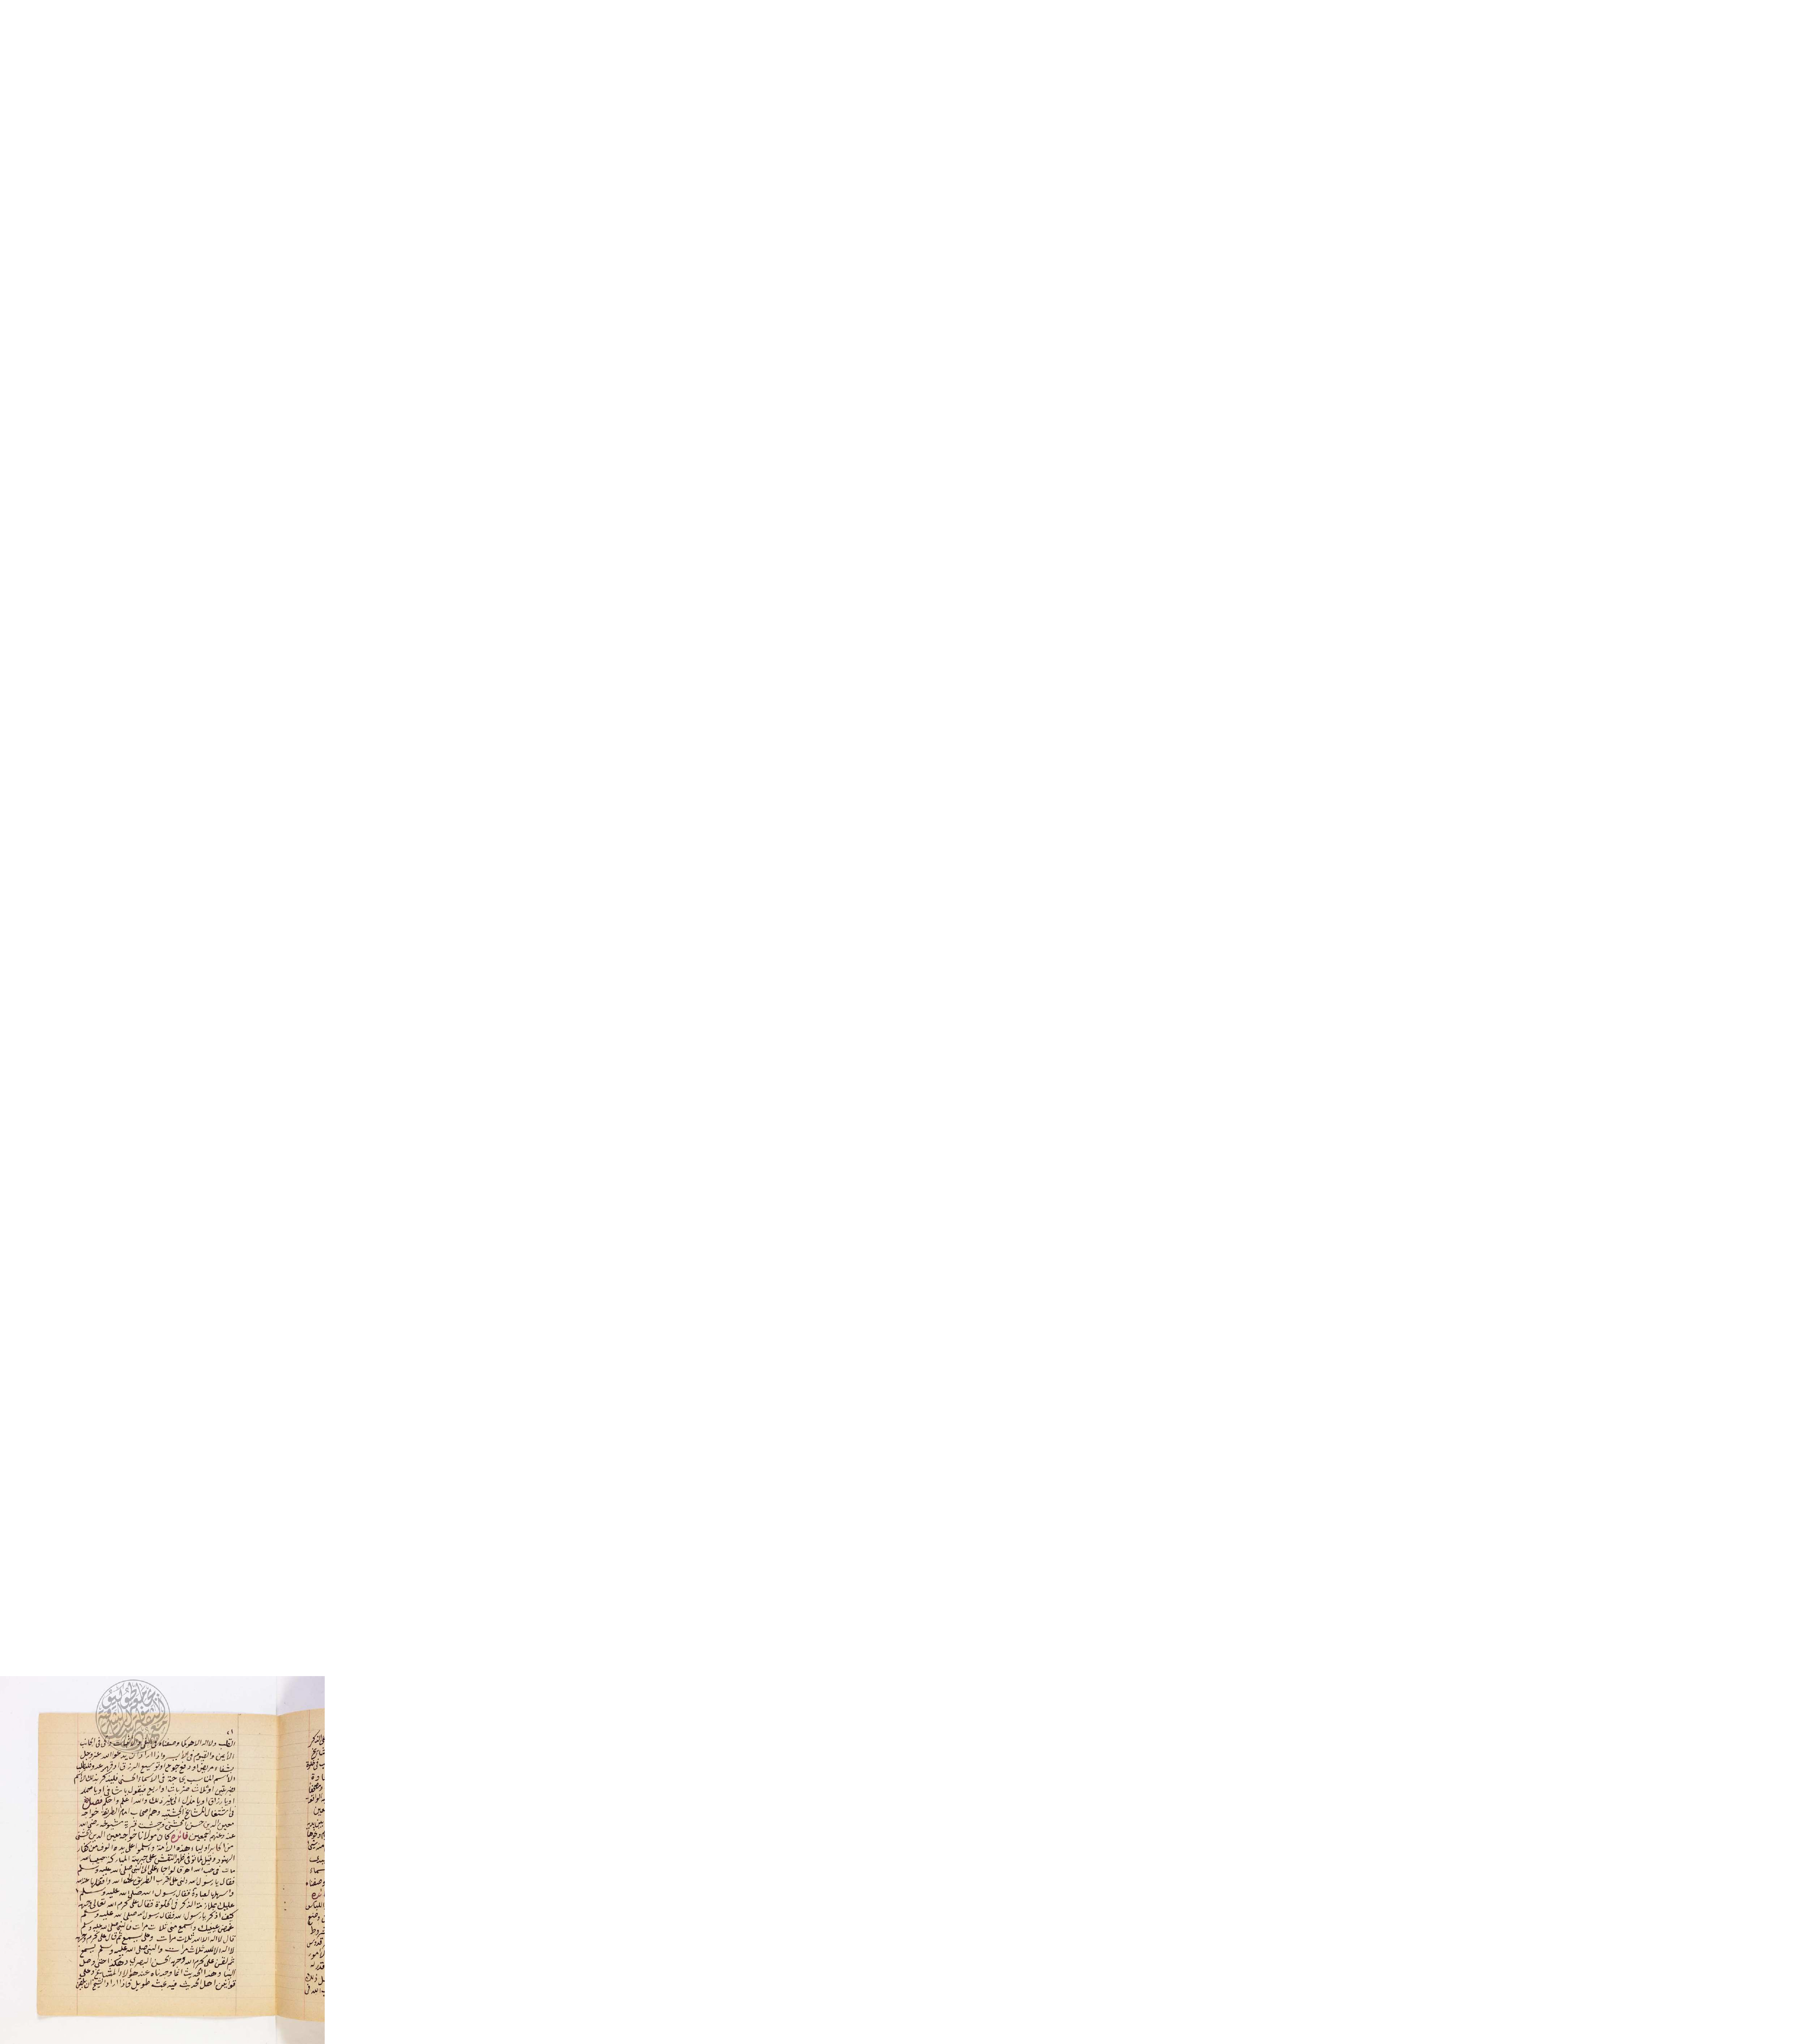 ٧١
القلب ولا اله الا هو كما وصفناه في النفي والاثبات والحي في الجانب
الأيمن والقيوم في الأيسر واذا اراد ان يدعو الله عز وجل
بشفاء مريض او دفع جوع او توسيع الرزق او قهر عدو فليطلب
الاسم المناسب بحاجته في الاسماء الحسنى فليذكر بذلك الاسم
بضربتين او ثلاث ضربات او اربع فيقول يا شافي او يا صمد
او يا رزاق او يا مذل الى غير ذلك والله اعلم واحكم فصل
في اشتغال المشائخ الجشتية وهم اصحاب امام الطريقة خواجه
معين الدين حسن الجشتي وجشت قرية شيوخه رضي الله
عنه وعنهم اجمعين فائدة كان مولانا خواجه معين الدين الجشتي
من اكابر اولياء هذه الأمة واسلموا على يده الوف من كفار
الهنود وقيل لما توفي ظهر النقش على جبهته المباركة حبيب الله
مات في حب الله اهـ قالوا جاء علي الى النبي صلى الله عليه وسلم
فقال يا رسول الله دلني على اقرب الطريق الى الله وافضلها عند الله
واسهلها لعباده فقال رسول الله صلى الله عليه وسلم
عليك بملازمة الذكر في الخلوة فقال علي كرم الله تعالى وجهه
كيف اذكر يا رسول الله فقال رسول الله صلى الله عليه وسلم
غمض عينيك واسمع مني ثلاث مرات فالنبي صلى الله عليه وسلم
قال لا اله الا الله ثلاث مرات وعلي يسمع ثم قال علي كرم وجهه
لا اله الا الله ثلاث مرات والنبي صلى الله عليه وسلم يسمع
ثم لقن علي كرم الله وجهه الحسن البصري وهكذا حتى وصل
الينا وهذا الحديث انما وجدناه عند هؤلاء المشائخ وعلى
قوانين اهل الحديث فيه بحث طويل فاذا اراد الشيخ ان يلقن